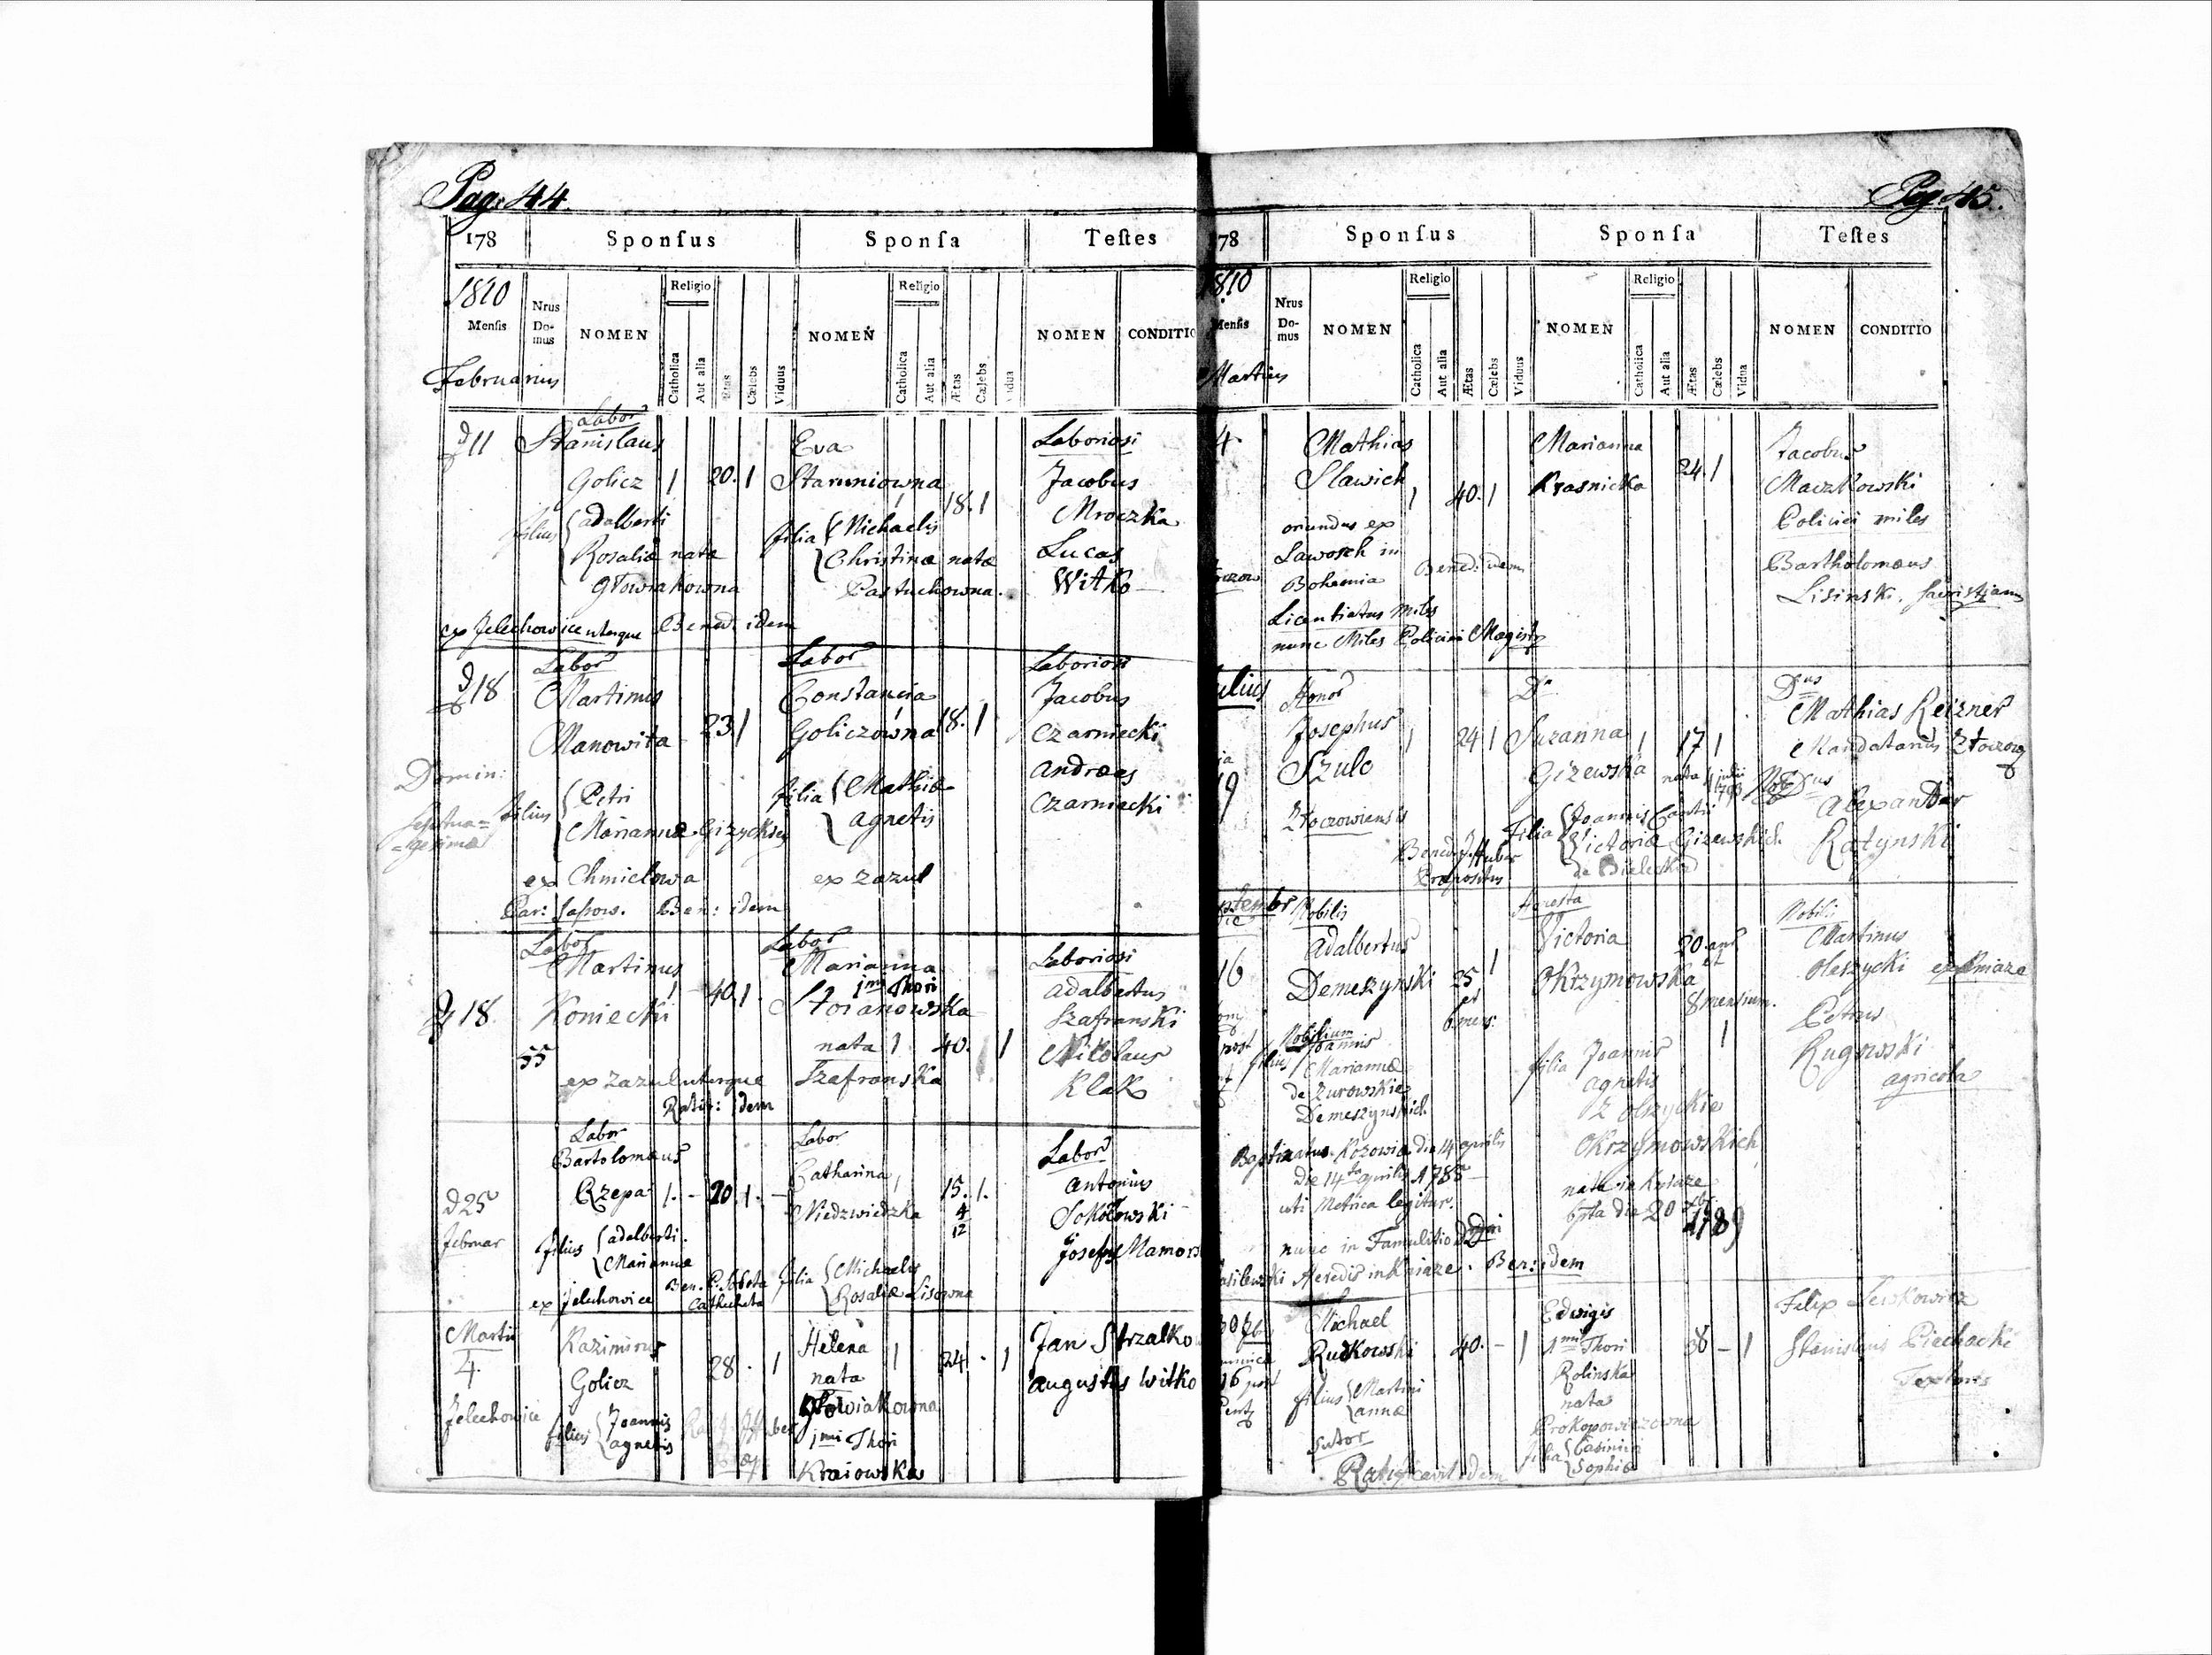 Pag. 44.
178 Sponſus Sponſa Teſtes
1810
Menſis Nrus Do-mus NOMEN Religio Catholica Aut alia Ætas Cælebs Viduus NOMEN Religio Catholica Aut alia Ætas Cælebs Vidua NOMEN CONDITIO
Februarius
Labor
d 11 Stanislaus Eva Laboriosi
Golicz 1 20. 1 Staruniowna 1 18. 1 Jacobus
filius Adalberti filia Michaelis Mroczka
Rosaliæ nata Christinæ natæ Lucas
Głowiakowna Pastuchowna. Witko
ex Jelechowice uterque Bened: idem
Labor Labor Laboriosi
d 18 Martinus Constancia Jacobus
Manowita 23. 1 Goliczówna 18. 1 Czarniecki
Domin: Septua=gesimæ
filius Petri filia Mathiæ Andreas
Mariannæ Gizyckiey Agnetis Czarniecki
ex Chmielowa ex Zazul
Par: Sassow. Ben: idem
Labor Labor
Martinus Marianna Laboriosi
1mi Thori
d 18. Koniecki 1 40. 1. Stoianowska Adalbertus
Szafranski
55 nata 1 40. 1 Nikolaus
ex Zazul uterque Szafranska Klak
Ratif: idem
Labor Labor Labor
Bartolomæus Catharina 1
d 25 Rzepa 1. - 20. 1. - Niedzwiedzka 15. 1. Antonius
4
12 Sokołowski
Februar filius Adalberti. Josephus
Mariannæ filia Michaelis
ex Jelechowice Ben. Catecheta Rosaliæ Lisowna
Martii Kazimirus Helena Jan Strzałko
4. Golicz 28. 1 nata 1 24 - 1 Augustus Witko
Jelechowice Głowiakowna
filius Joannis 1mi Thori
Agnetis Kraiowska
Pag. 45.
178 Sponſus Sponſa Teſtes
1810
Menſis Nrus Do-mus NOMEN Religio Catholica Aut alia Ætas Cælebs Viduus NOMEN Religio Catholica Aut alia Ætas Cælebs Vidua NOMEN CONDITIO
Martius
4. Mathias Marianna Jacobus
Slawich 1 40. 1 Krasnicka 24. 1 Maczkowski
oriundus ex Policiei miles
Lawosch in Bened: idem Bartholomæus
Bohemia Lisinski,
Licentiatus Miles
nunc Miles Policiei Magist
Julius Honor Dna Dnus
Mathias Reizner
Josephus 1 24 1 Suzanna 1 17 1 Mandatarius Złoczow
19 Szulc Gizewska nata julii
1793 Dnus
Alexander
Złoczowiensis filia Joannis Cantii
Bened: J. Huber Victoriæ Gizewskich Ratynski
Præpositus de Bielecki
Septembr Nobilis Honesta Nobilis
die Adalbertus Victoria 20. ann Martinus
16 Demeszynski 25 1 Okrzymowska et Oleszycki ex Kniaze
et 6 mens. 8 mensium.
Nobilium 1 Petrus
filius Joannis filia Joannis Rugowski
Mariannæ Agnetis agricola
de Zurowskie
Demeszynskich. Okrzymowskich
Baptisatus Kozowie die 14 Aprilis
die 14ta Aprilis 1785 nata in Kniaze
uti Metrica legitur. die 20
1789
nunc in Famulitio
Wasilewski Heredis in Kniaze. Ben: idem
30 7br Michael Edvigis Filip Lewkowicz
Rudkowski 40. - 1 1mi Thori 38 - 1 Stanislaus Piechacki
16 post Rolinska Textores
Pent filius Martini nata
Annæ Prokopowiczowna
Sutor filia Casimiri
Ratificavit idem Sophiæ